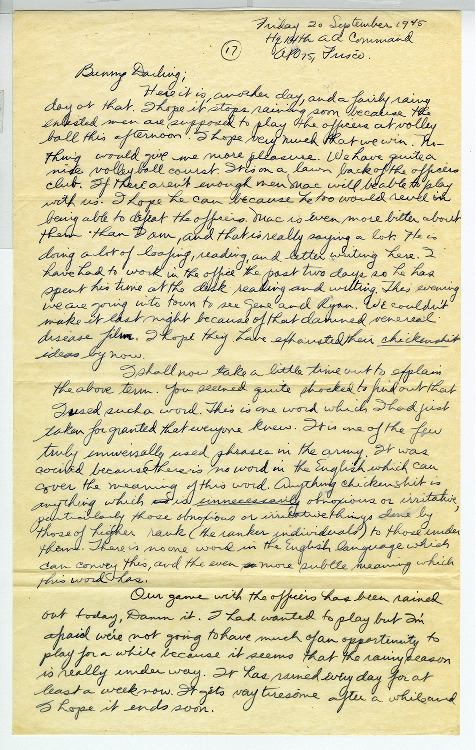 Friday 20 September 1945
Hq. 14th AA Command
APO 75, Frisco.
17
Bunny Darling;
Here it is, another day, and a fairly rainy
day at that. I hope it stops raining soon because the
enlisted men are supposed to play the officers at volley
ball this afternoon. I hope very much that we win. No-
thing would give me more pleasure. We have quite a
nice volleyball court. It is on a lawn back of the officers
club. If there aren't enough men Mac will be able to play
with us. I hope he can because he too would revel in
being able to defeat the officers. Mac is even more bitter about
them than I am, and that is really saying a lot. He is
doing a lot of loafing, reading, and letter writing here. I
have had to work in the office the past two days so he has
spent his time at the desk reading and writing. This evening
we are going into town to see Gene and Ryan. We couldn't
make it last night because of that damned venereal
disease film. I hope they have exhausted their chickenshit
ideas by now.
I shall now take a little time out to explain
the above term. You seemed quite shocked to find out that
I used such a word. This is one word which I had just
taken for granted that everyone knew. It is one of the few
truly universally used phrases in the army. It was
coined because there is no word in the English which can
cover the meaning of this word. Anything chickenshit is
anything which is unnecessarily obnoxious or irritative,
particularly those obnoxious or irritative things done by
those of higher rank (the ranker individuals) to those under
them. There is no one word in the English language which
can convey this, and the even more subtle meaning which
this word has.
Our game with the officers has been rained
out today, Damn it. I had wanted to play but I'm
afraid we're not going to have much of an opportunity to
play for a while because it seems that the rainy season
is really under way. It has rained every day for at
least a week now. It gets very tiresome after a while and
I hope it ends soon.